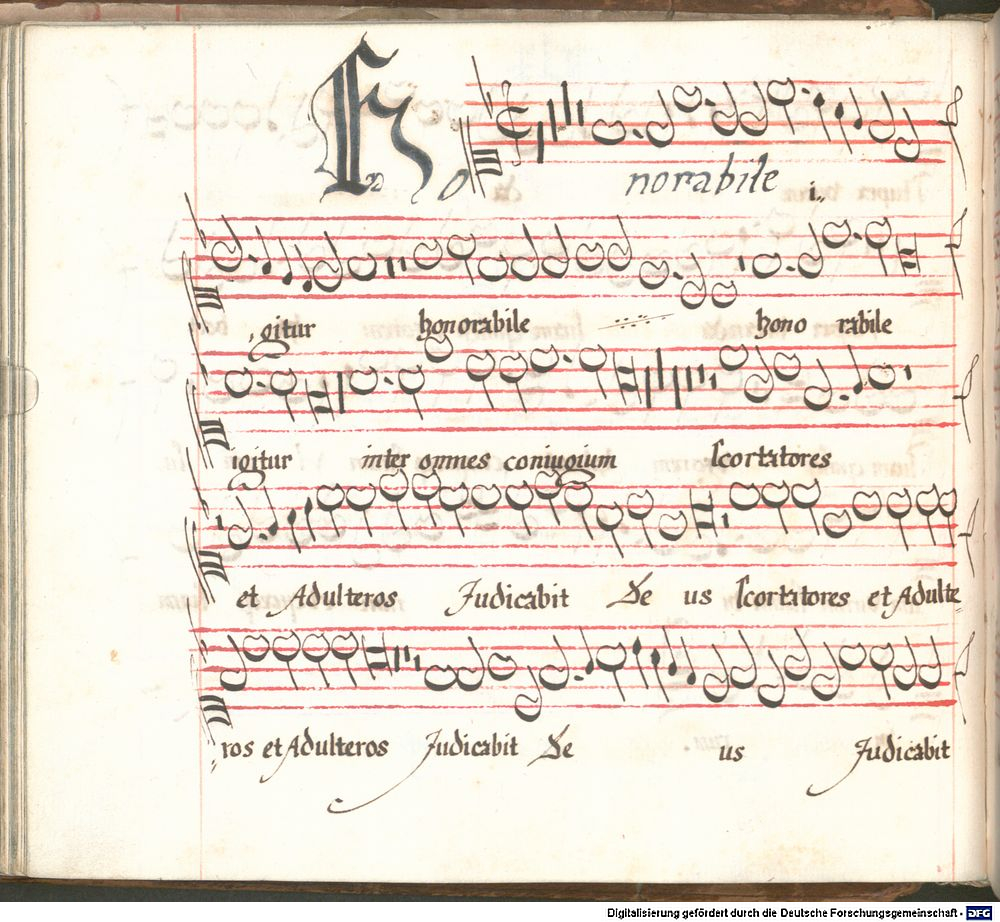 Ho norabile i.,
,gitur honorabile hono rabile
igitur inter omnes coniugium scortatores
et Adulteros Judicabit De us scortatores et Adulte
,,ros et Adulteros Judicabit De us Judicabit
Digitalisierung gefördert durch die Deutsche Forschungsgemeinschaft - DFG